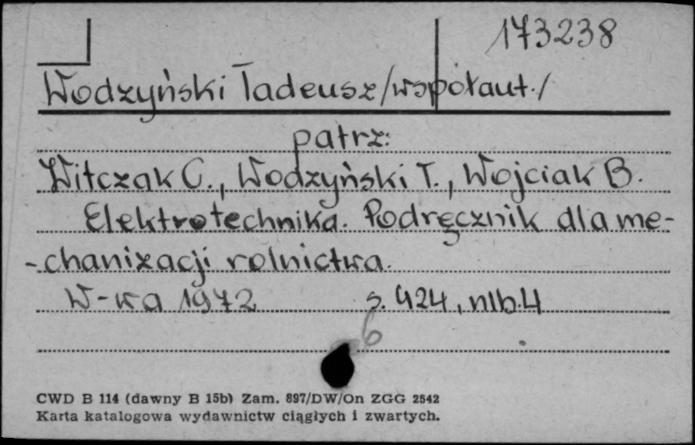 173238
Wodzyński Tadeusz /współaut./
patrz:
Witczak C., Wodzyński T., Wojciak B.
Elektrotechnika. Podręcznik dla me-
-chanizacji rolnictwa.
W-wa 1972 s. 424, nlb. 4
6
CWD B 114 (dawny B 15b) Zam. 897/DW/On ZGG 2542
Karta katalogowa wydawnictw ciągłych i zwartych.